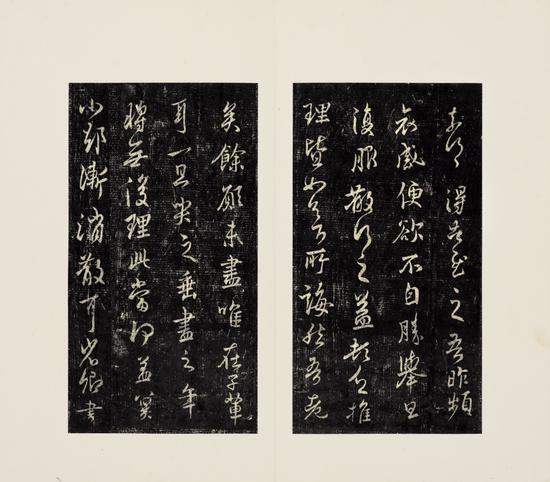 奈何得告慰之吾昨頻
哀感便欲不自勝舉旦
復服散行之益頓乏推
理皆如足下所誨然吾老
矣餘願未盡唯在子輩
耳一旦哭之垂盡之年
轉無復理此當何益冀
小却漸消散耳省卿書